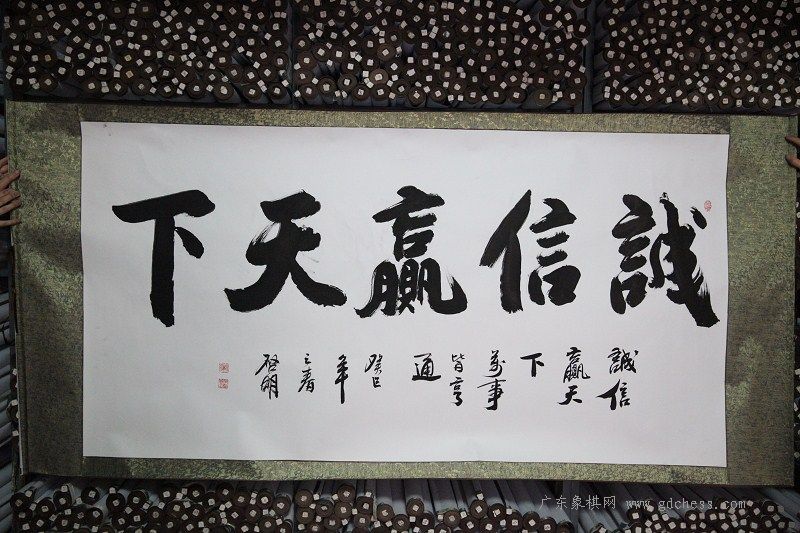 誠信贏天下
誠信
贏天
下
萬事
皆亨
通
癸巳
年
之春
啟明
广东象棋网 www.gdchess.com